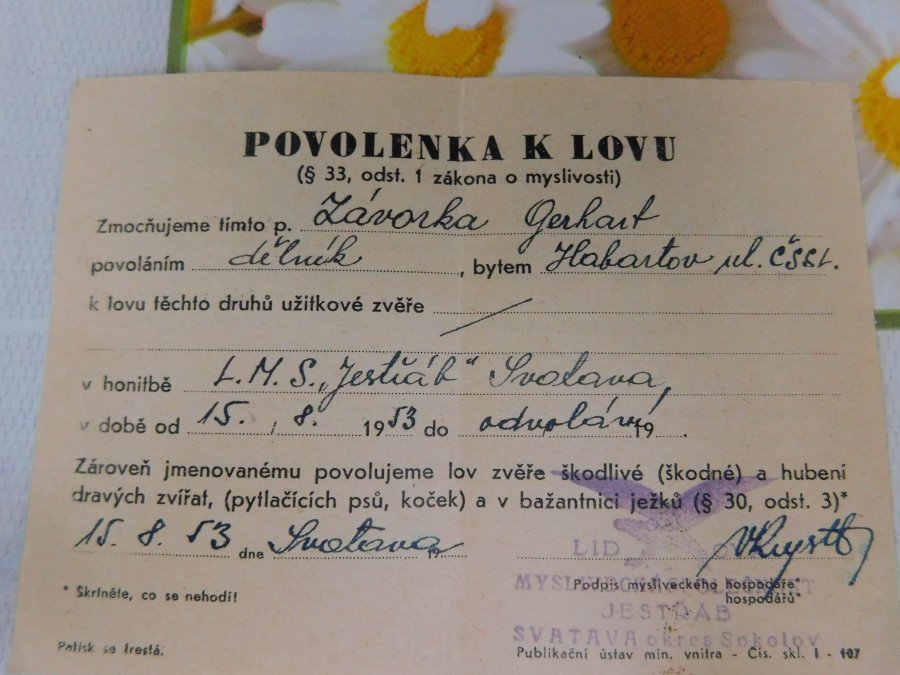 POVOLENKA K LOVU
(§ 33, odst. 1 zákona o myslivosti)
Zmocňujeme tímto p. Závorka Gerhart
povoláním dělník, bytem Habartov ul. ČSSL.
k lovu těchto druhů užitkové zvěře
v honitbě L.M.S. „Jestřáb" Svatava,
v době od 15. 8. 1953 do odvolání 19 .
Zároveň jmenovanému povolujeme lov zvěře škodlivé (škodné) a hubení
dravých zvířat, (pytlačících psů, koček) a v bažantnici ježků (§ 30, odst. 3)*
15. 8. 53 dne Svatava
LID
MYSLIVECKÁ SPOLEČNOST
JESTŘÁB
SVATAVA okres Sokolov
Podpis mysliveckého hospodáře*
hospodářů*
* Škrtněte, co se nehodí!
Patisk se trestá.
Publikační ústav min. vnitra - Čís. skl. I - 107